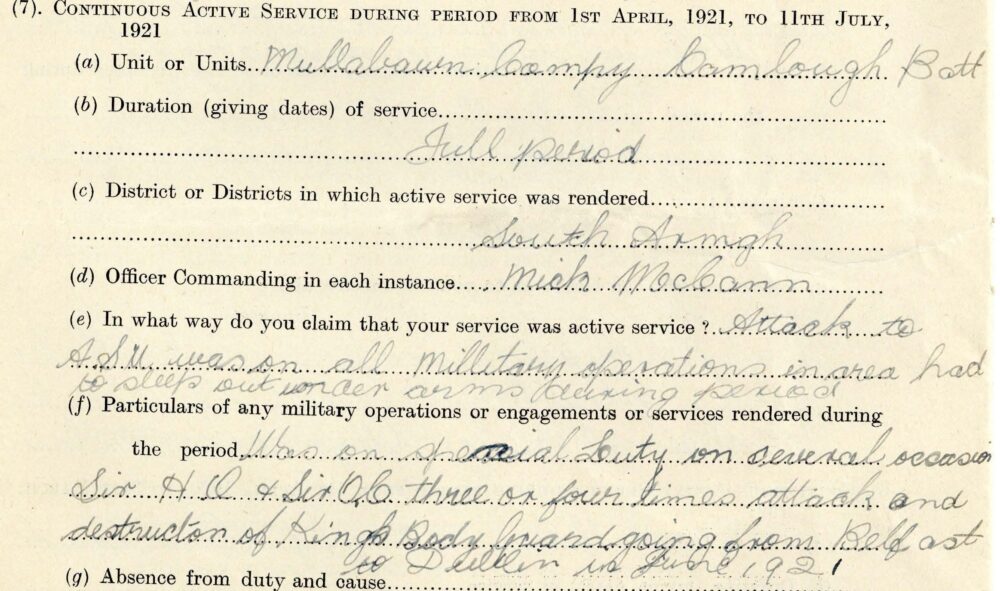 (7). CONTINUOUS ACTIVE SERVICE DURING PERIOD FROM 1ST APRIL, 1921, TO 11TH JULY,
1921
(a) Unit or Units Mullabawn Compy Camlough Batt
(b) Duration (giving dates) of service
Full period
(c) District or Districts in which active service was rendered
South Armgh
(d) Officer Commanding in each instance Mick McCann
(e) In what way do you claim that your service was active service ? Attack to
A.S.U. was on all Millitary operations in area had
to sleep out under arms during period
(f) Particulars of any military operations or engagements or services rendered during
the period Was on special Duty on several occasion
Sir H Q & Sir O/C three or four times attack and
destructon of Kings Body Guard going from Belfast
to Dublin in June 1921
(g) Absence from duty and cause